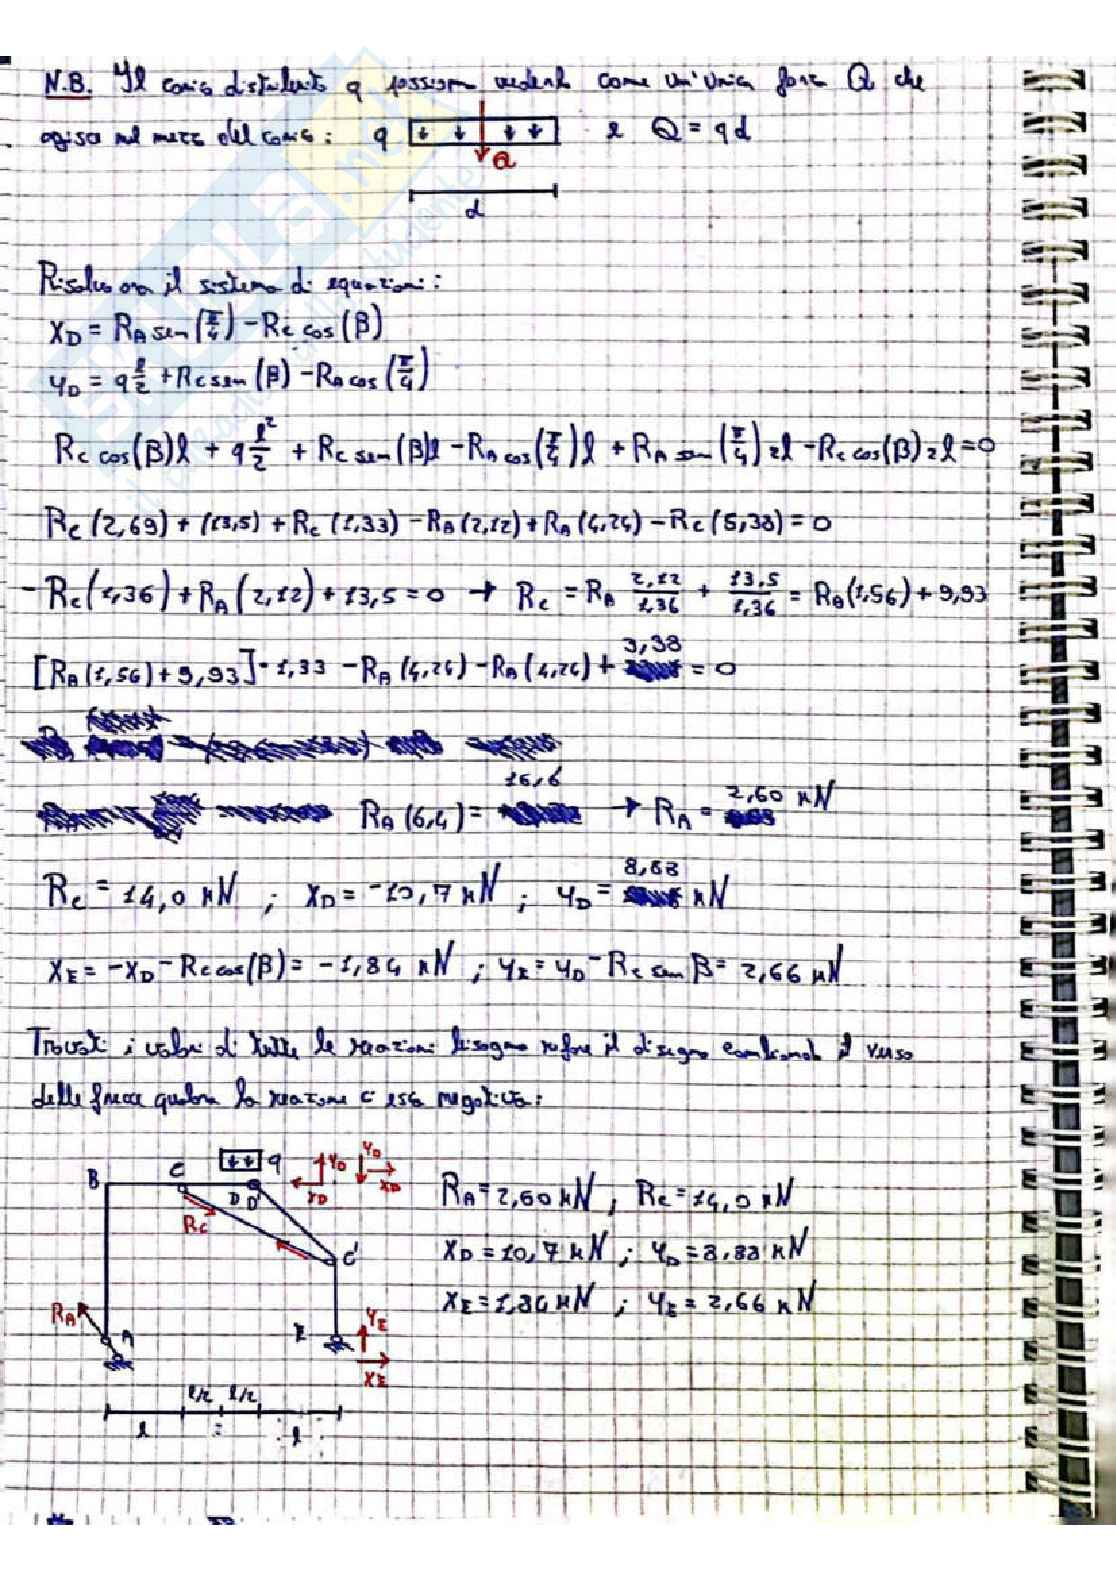 N.B. Il carico distribuito q possiamo vederlo come un'unica forza Q che
agisce nel mezzo del carico: q Q d e Q = qd
Risolvo ora il sistema di equazioni:
X_D = R_A sen(π/4) - R_C cos(β)
Y_D = q l/2 + R_C sen(β) - R_A cos(π/4)
R_C cos(β)l + q l²/2 + R_C sen(β)l - R_A cos(π/4)l + R_A sen(π/4)2l - R_C cos(β)2l = 0
R_C(2,69) + (13,5) + R_C(1,33) - R_A(2,12) + R_A(4,24) - R_C(5,38) = 0
-R_C(1,36) + R_A(2,12) + 13,5 = 0 → R_C = R_A 2,12/1,36 + 13,5/1,36 = R_A(1,56) + 9,93
[R_A(1,56) + 9,93] · 1,33 - R_A(4,24) - R_A(4,24) + 3,38 = 0
R_A(6,4) = 16,6 → R_A = 2,60 kN
R_C = 14,0 kN ; X_D = -10,7 kN ; Y_D = 8,88 kN
X_E = -X_D - R_C cos(β) = -1,84 kN ; Y_E = Y_D - R_C sen β = 2,66 kN
Trovati i valori di tutte le reazioni bisogna rifare il disegno cambiando il verso
delle frecce qualora la reazione è essa negativa:
B C q Y_D X_D Y_D X_D
D D
R_C C'
R_A A E Y_E X_E
l/2 l/2
l = l
R_A = 2,60 kN ; R_C = 14,0 kN
X_D = 10,7 kN ; Y_D = 8,88 kN
X_E = 1,84 kN ; Y_E = 2,66 kN